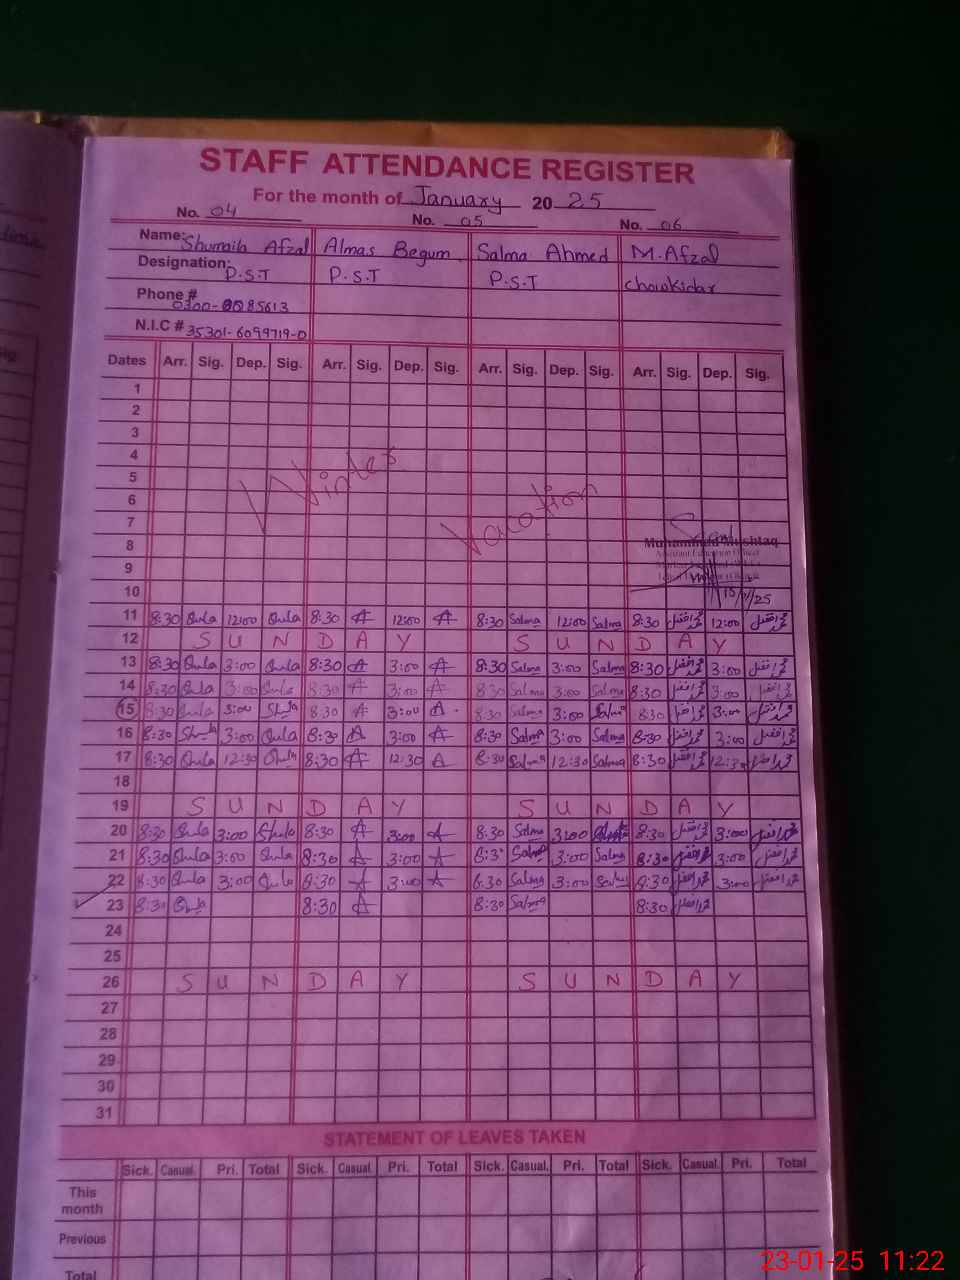 STAFF ATTENDANCE REGISTER
For the month of January 2025
No. 04 No. 05 No. 06
Name: Shumaila Afzal Almas Begum Salma Ahmed M.Afzal
Designation: P.S.T P.S.T P.S.T chowkidar
Phone #
N.I.C # 35301-6099719-0
Dates Arr. Sig. Dep. Sig. Arr. Sig. Dep. Sig. Arr. Sig. Dep. Sig. Arr. Sig. Dep. Sig.
1
2
3
4
5
6
7
8
9
10
Winter Vacation
Muhammad Mushtaq
Assistant Education Officer
11 8:30 12:00 8:30 A 12:00 A 8:30 Salma 12:00 Salma 8:30 محمد افضل 12:00 محمد افضل
12 SUNDAY SUNDAY
13 8:30 3:00 8:30 A 3:00 A 8:30 Salma 3:00 Salma 8:30 محمد افضل 3:00 محمد افضل
14 8:30 3:00 8:30 A 3:00 A 8:30 Salma 3:00 Salma 8:30 محمد افضل 3:00 محمد افضل
15 8:30 3:00 8:30 A 3:00 A 8:30 Salma 3:00 Salma 8:30 محمد افضل 3:00 محمد افضل
16 8:30 3:00 8:30 A 3:00 A 8:30 Salma 3:00 Salma 8:30 محمد افضل 3:00 محمد افضل
17 8:30 12:30 8:30 A 12:30 A 8:30 Salma 12:30 Salma 8:30 محمد افضل 12:30 محمد افضل
18
19 SUNDAY SUNDAY
20 8:30 3:00 8:30 A 3:00 A 8:30 Salma 3:00 8:30 محمد افضل 3:00 محمد افضل
21 8:30 3:00 8:30 A 3:00 A 8:30 Salma 3:00 Salma 8:30 محمد افضل 3:00 محمد افضل
22 8:30 3:00 8:30 A 3:00 A 8:30 Salma 3:00 Salma 8:30 محمد افضل 3:00 محمد افضل
23 8:30 8:30 A 8:30 Salma 8:30 محمد افضل
24
25
26 SUNDAY SUNDAY
27
28
29
30
31
STATEMENT OF LEAVES TAKEN
Sick. Casual. Pri. Total Sick. Casual. Pri. Total Sick. Casual. Pri. Total Sick. Casual. Pri. Total
This month
Previous
Total
23-01-25 11:22